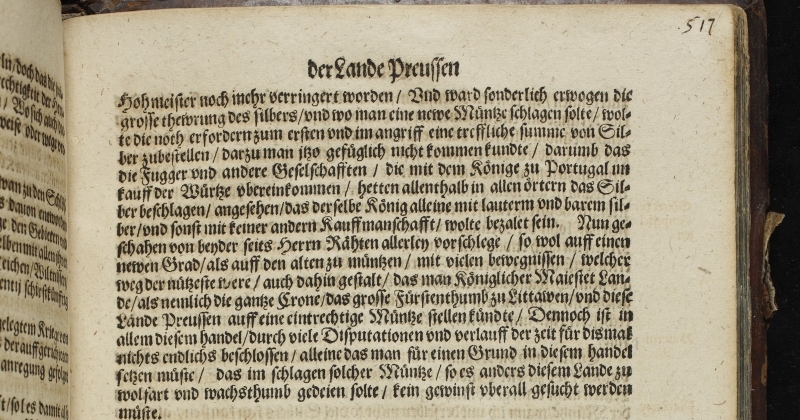 517
der Lande Preussen
Hohmeister noch mehr verringert worden / Vnd ward sonderlich erwogen die
grosse thewrung des silbers/vnd wo man eine newe Müntze schlagen solte/wol-
te die noth erfordern zum ersten vnd im angriff eine treffliche summe von Sil-
ber zubestellen / darzu man itzo gefüglich nicht kommen kundte / darumb das
die Fugger vnd andere Geselschafften / die mit dem Könige zu Portugal im
kauff der Würtze vbereinkommen / hetten allenthalb in allen örtern das Sil-
ber beschlagen/ angesehen/das derselbe König alleine mit lauterm vnd barem sil-
ber/vnd sonst mit keiner andern Kauffmanschafft/wolte bezalet sein. Nun ge-
schahen von beyder seits Herrn Rähten allerley vorschlege / so wol auff einen
newen Grad/als auff den alten zu müntzen / mit vielen bewegnissen / welcher
weg der nützeste were / auch dahin gestalt / das man Königlicher Maiestet Lan-
de/als nemlich die gantze Crone/das grosse Fürstenthumb zu Littawen/vnd diese
Lande Preussen auff eine eintrechtige Müntze stellen kündte / Dennoch ist in
allem diesem handel/durch viele Disputationen vnd verlauff der zeit für dismal
nichts endlichs beschlossen / alleine das man für einen Grund in diesem handel
setzen müste / das im schlagen solcher Müntze / so es anders diesem Lande zu
wolfart vnd wachsthumb gedeien solte / kein gewinst vberall gesucht werden
müste.